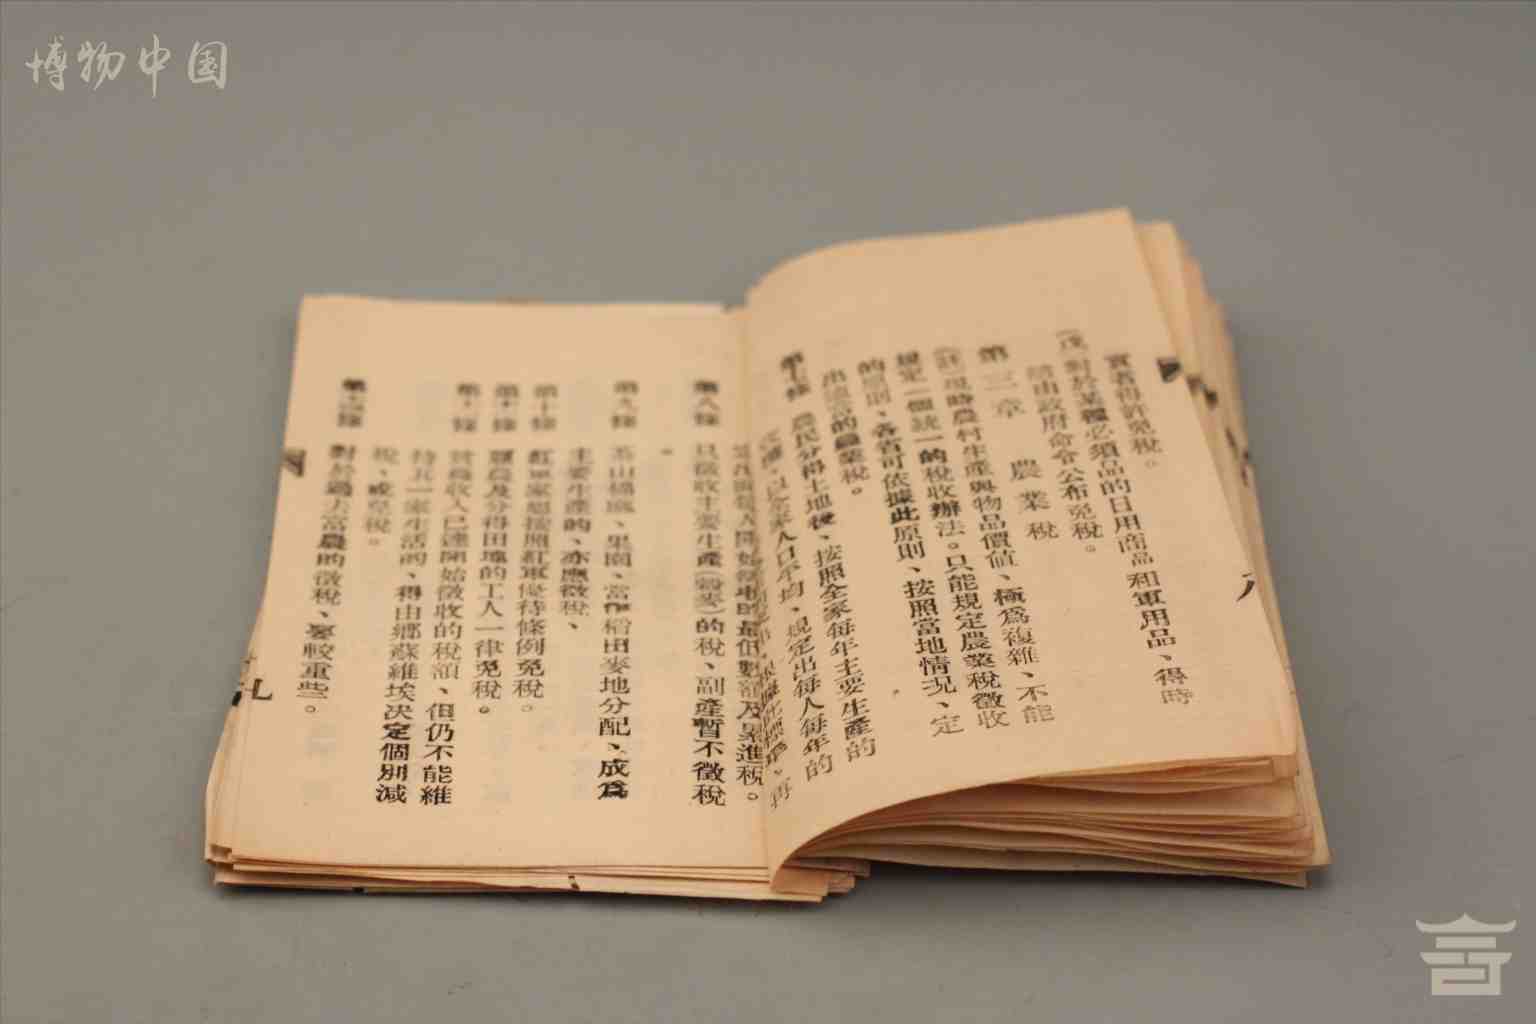 博物中国
實者得許免稅。
(戊)對於某種必須品的日用商品和軍用品、得時
由政府命令公布免稅。
第三章 農業稅
(註)現時農村生產與物品價值、極爲複雜、不能
規定一個統一的稅收辦法。只能規定農業稅徵收
的原則、各省可依據此原則、按照當地情况、定
出適當的農業稅。
農民分得土地後、按照全家每年主要生產的
以全家人口平均、規定出每人每年的
再
的最低數額及累進稅。
第八條 只徵收主要生產(穀麥)的稅、副產暫不徵稅
。
第九條 茶山棉麻、果園、當作稻田麥地分配、成爲
主要生產的、亦應徵稅、
第十條 紅軍家屬按照紅軍優待條例免稅。
雇農及分得田地的工人一律免稅。
貧農收入已達開始徵收的稅額、但仍不能維
持其一家生活的、得由鄉蘇維埃决定個別減
稅、或免稅。
對於過去富農的徵稅、要較重些。
八
九